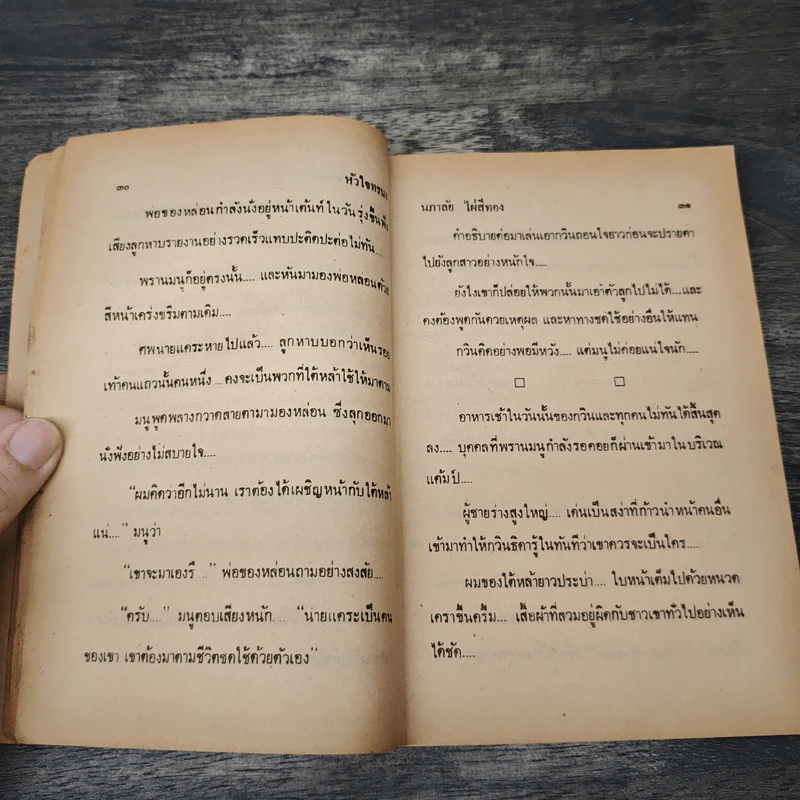 ๓๐
หัวใจทรนง
พ่อของหล่อนกำลังนั่งอยู่หน้าเต้นท์ ในวันรุ่งขึ้นฟัง
เสียงลูกหาบรายงานอย่างรวดเร็วแทบปะติดปะต่อไม่ทัน....
พรานมนูก็อยู่ตรงนั้น.... และหันมามองพ่อหล่อนด้วย
สีหน้าเคร่งขรึมตามเดิม....
ศพนายแคระหายไปแล้ว.... ลูกหาบบอกว่าเห็นรอย
เท้าคนแถวนั้นคนหนึ่ง ...คงจะเป็นพวกที่ใต้หล้าใช้ให้มาตาม
มนูพูดพลางกวาดสายตามามองหล่อน ซึ่งลุกออกมา
นั่งฟังอย่างไม่สบายใจ....
“ผมคิดว่าอีกไม่นาน เราต้องได้เผชิญหน้ากับใต้หล้า
แน่....” มนูว่า
“เขาจะมาเองรึ ...” พ่อของหล่อนถามอย่างสงสัย....
“ครับ....” มนูตอบเสียงหนัก... “นายแคระเป็นคน
ของเขา เขาต้องมาตามชีวิตชดใช้ด้วยตัวเอง”
นภาลัย ไผ่สีทอง
๓๑
คำอธิบายต่อมาเล่นเอากวินถอนใจยาวก่อนจะปรายตา
ไปยังลูกสาวอย่างหนักใจ....
ยังไงเขาก็ปล่อยให้พวกนั้นมาเอาตัวลูกไปไม่ได้....และ
คงต้องพูดกันด้วยเหตุผล และหาทางชดใช้อย่างอื่นให้แทน
กวินคิดอย่างพอมีหวัง.... แต่มนูไม่ค่อยแน่ใจนัก....
อาหารเช้าในวันนั้นของกวินและทุกคนไม่ทันได้สิ้นสุด
ลง.... บุคคลที่พรานมนูกำลังรอคอยก็ผ่านเข้ามาในบริเวณ
แค้มป์....
ผู้ชายร่างสูงใหญ่.... เด่นเป็นสง่าที่ก้าวนำหน้าคนอื่น
เข้ามาทำให้กวินธิดารู้ในทันทีว่าเขาควรจะเป็นใคร....
ผมของใต้หล้ายาวประบ่า.... ใบหน้าเต็มไปด้วยหนวด
เคราขึ้นครึ้ม.... เสื้อผ้าที่สวมอยู่ผิดกับชาวเขาทั่วไปอย่างเห็น
ได้ชัด....